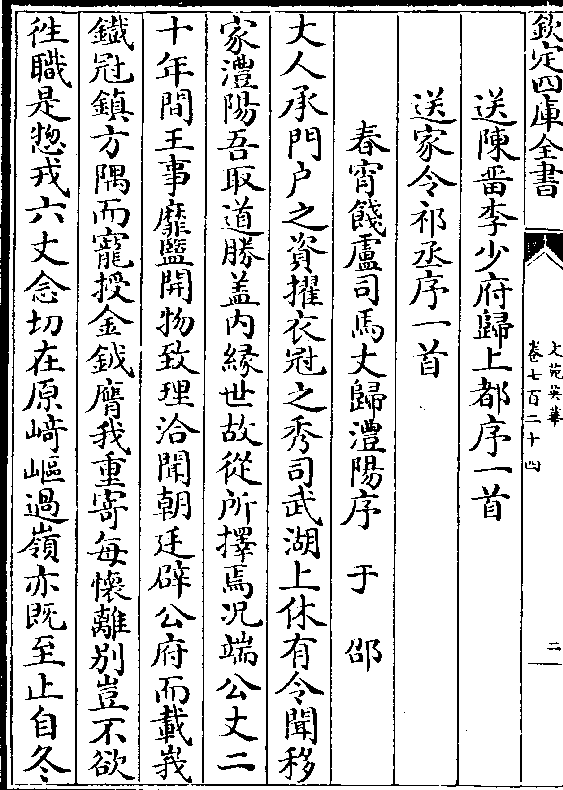 欽定四庫全書
文苑英華
卷七百二十四
二
送陳畨李少府歸上都序一首
送家令祁丞序一首
春宵餞盧司馬丈歸澧陽序 于邵
大人承門户之資擢衣冠之秀司武湖上休有令聞移
家澧陽吾取道勝盖内緣世故從所擇焉况端公丈二
十年間王事靡盬開物致理洽聞朝廷辟公府而載峩
鐵冠鎮方隅而寵授金鉞膺我重寄每懷離别豈不欲
徃職是愗戎六丈念切在原﨑嶇過嶺亦既至止自冬